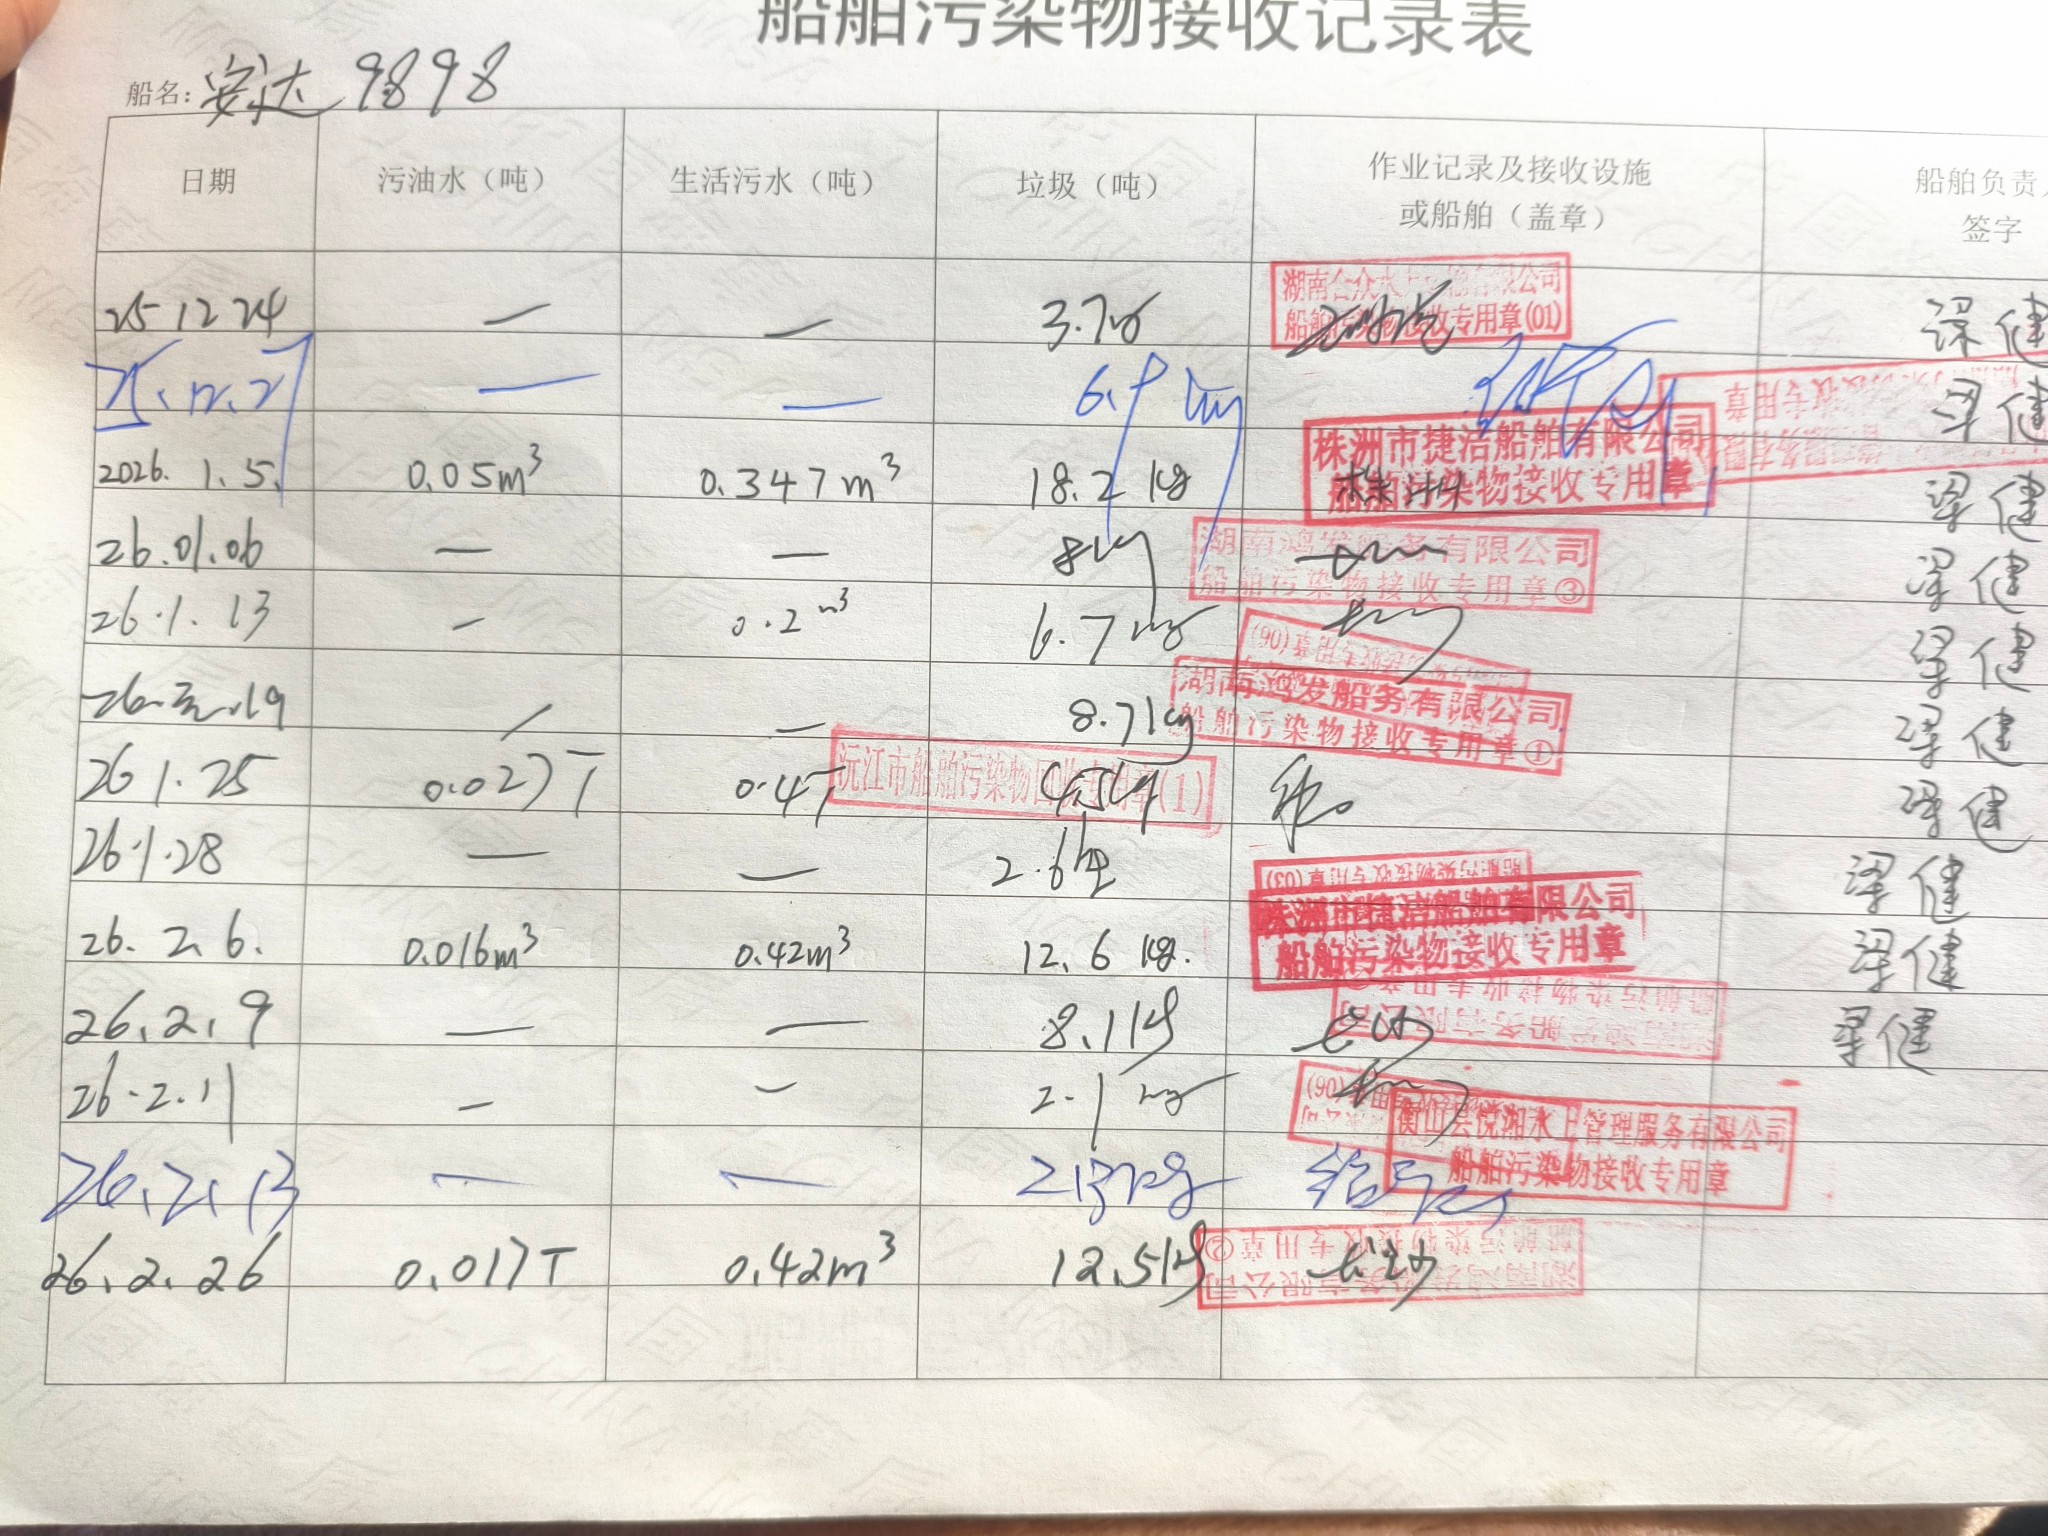 船舶污染物接收记录表
船名: 安达 9898
日期 污油水（吨） 生活污水（吨） 垃圾（吨） 作业记录及接收设施或船舶（盖章） 船舶负责 签字
25 12 24 — — 3.7kg 船舶污染物接收专用章(01) 梁健
25.12.27 — — 6.9kg 梁健
2026. 1. 5. 0.05m³ 0.347m³ 18.2 kg 株洲市捷洁船舶有限公司 船舶污染物接收专用章 株洲 梁健
26.01.06 — — 8kg 湖南鸿发船务有限公司 船舶污染物接收专用章③ 梁健
26.1.13 — 0.2m³ 6.7kg 梁健
26.元.19 — — 8.7kg 湖南鸿发船务有限公司 船舶污染物接收专用章① 梁健
26 1.25 0.027T 0.4T 沅江市船舶污染物回收专用章(1) 梁健
26.1.28 — — 2.6kg 船舶污染物接收专用章(03) 梁健
26. 2. 6. 0.016m³ 0.42m³ 12.6 kg. 株洲市捷洁船舶有限公司 船舶污染物接收专用章 梁健
26.2.9 — — 8.1kg 长沙 梁健
26.2.11 — — 2.1kg
26.2.13 — — 衡山县悦湘水上管理服务有限公司 船舶污染物接收专用章
26.2.26 0.017T 0.42m³ 12.5kg 长沙